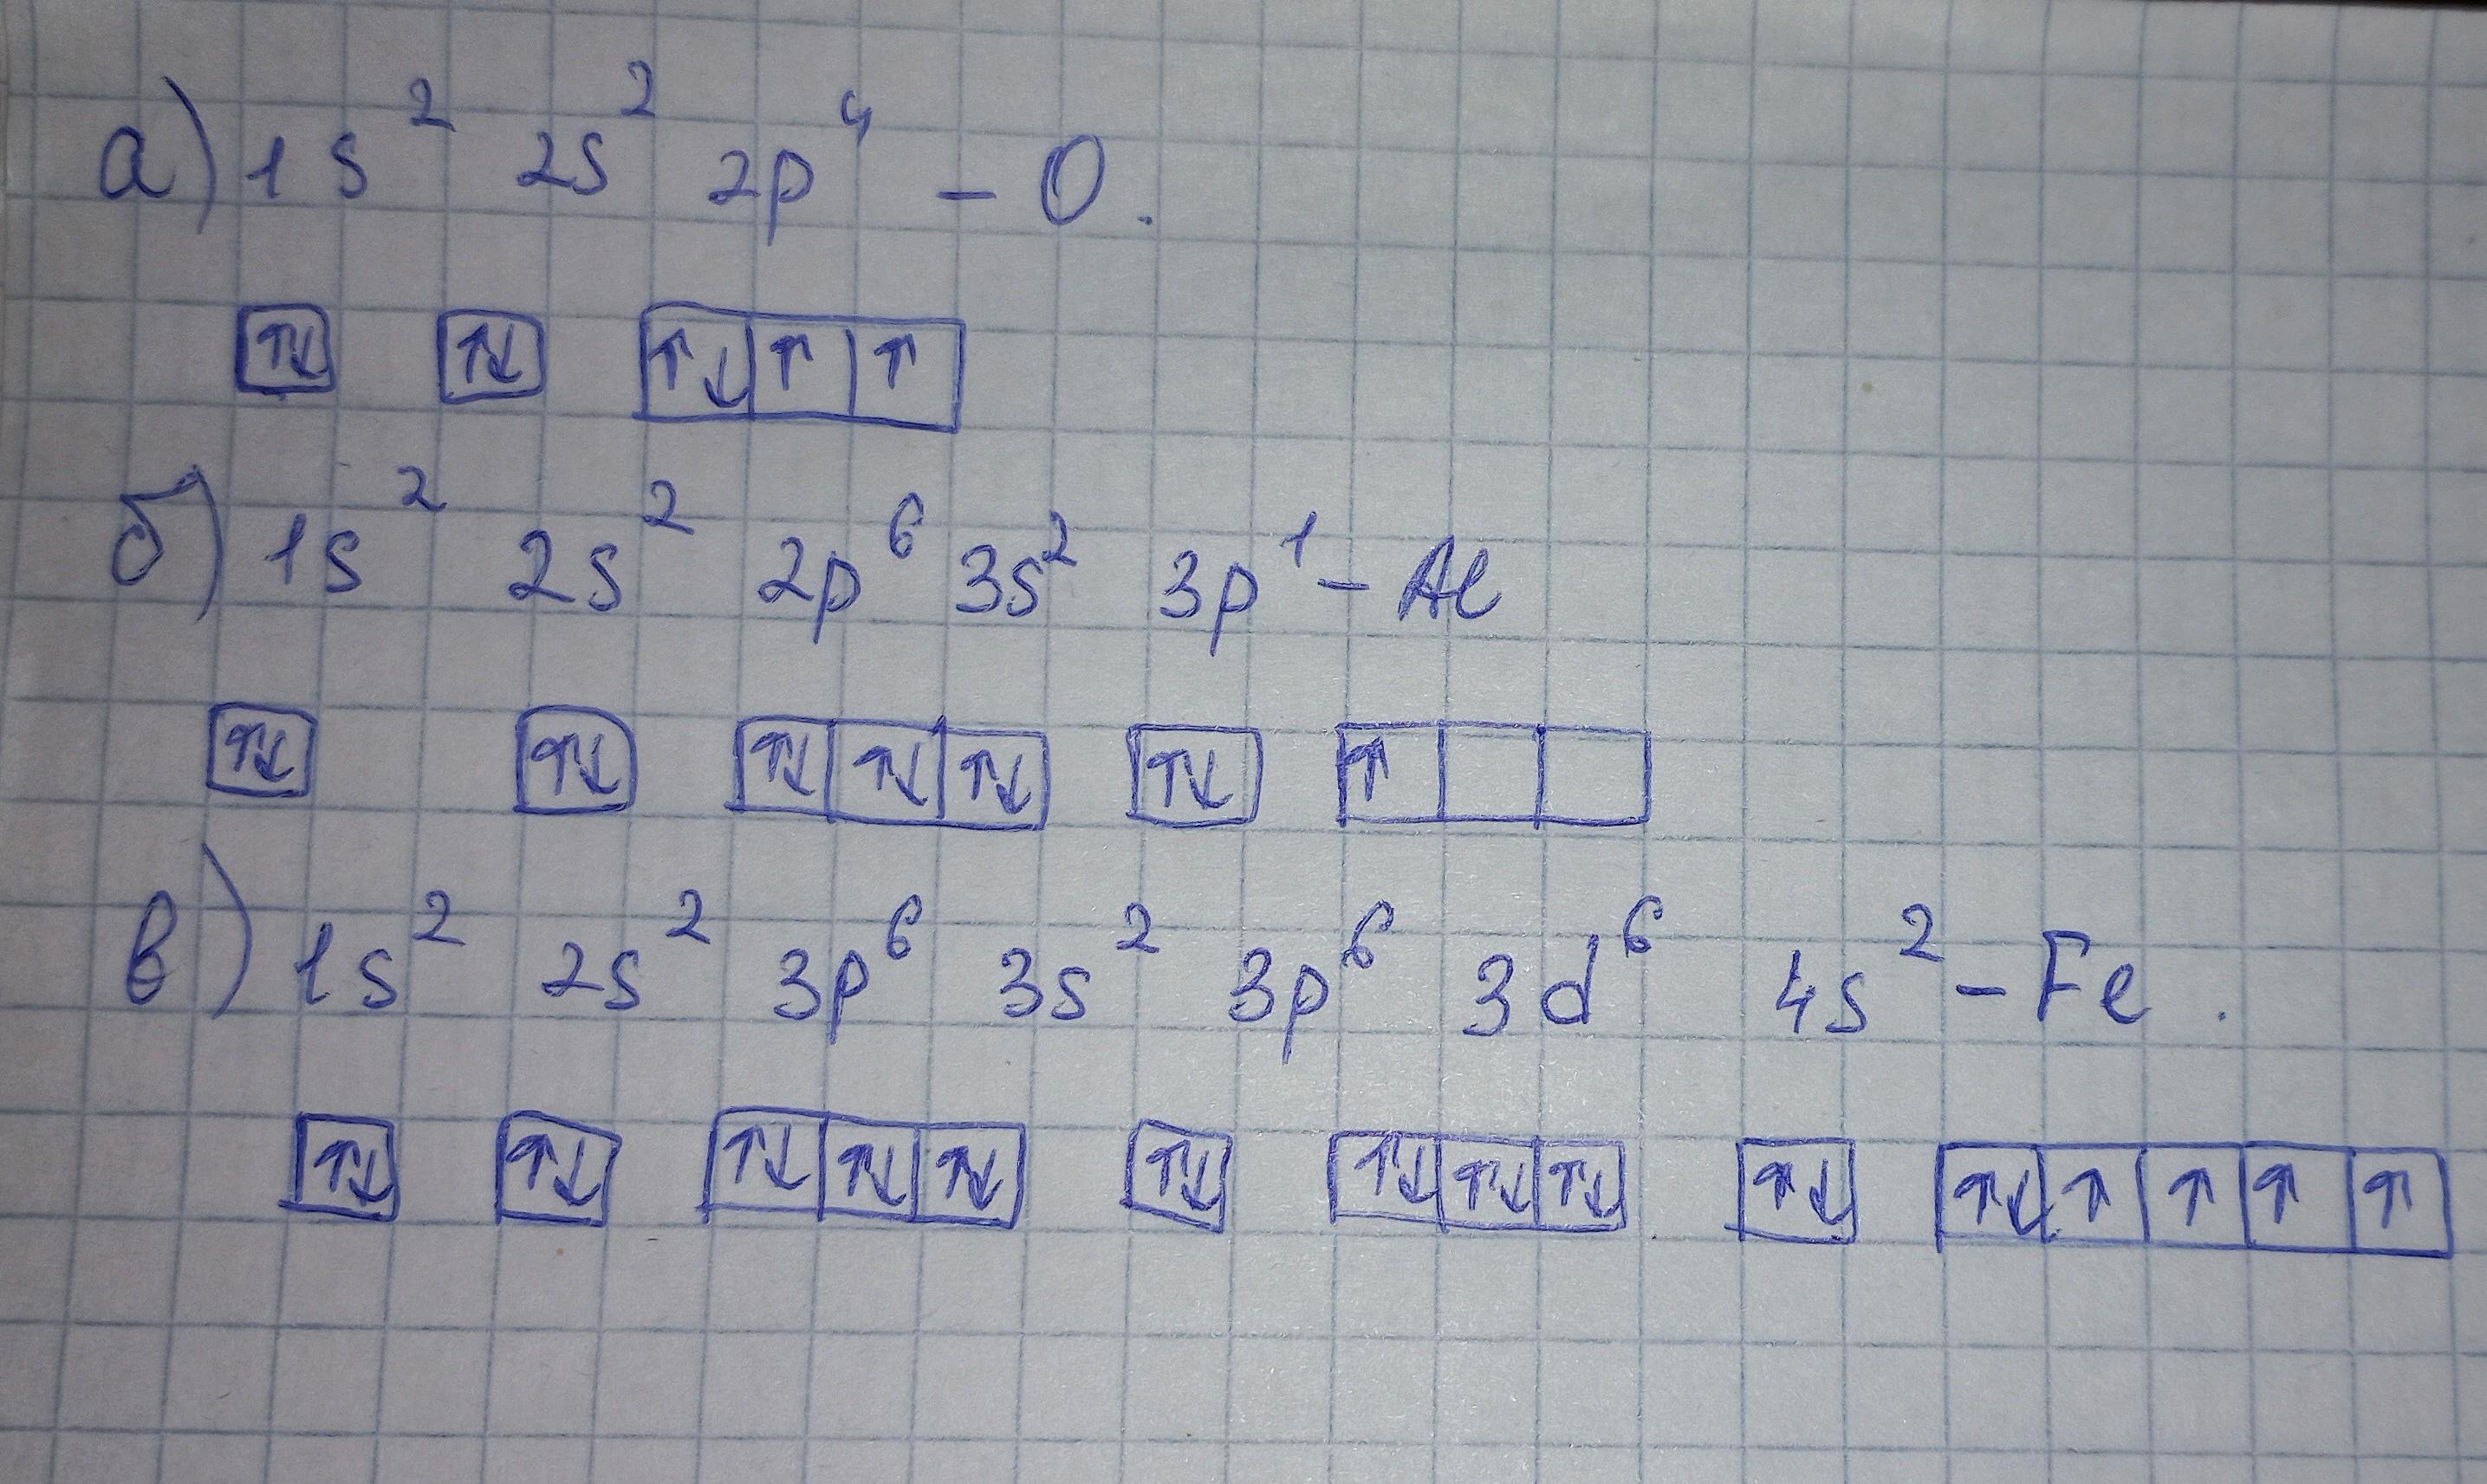 а) 1s² 2s² 2p⁴ – O.
↑↓ ↑↓ ↑↓ ↑ ↑
б) 1s² 2s² 2p⁶ 3s² 3p¹ – Al
↑↓ ↑↓ ↑↓ ↑↓ ↑↓ ↑↓ ↑
в) 1s² 2s² 3p⁶ 3s² 3p⁶ 3d⁶ 4s² – Fe.
↑↓ ↑↓ ↑↓ ↑↓ ↑↓ ↑↓ ↑↓ ↑↓ ↑↓ ↑↓ ↑↓ ↑ ↑ ↑ ↑